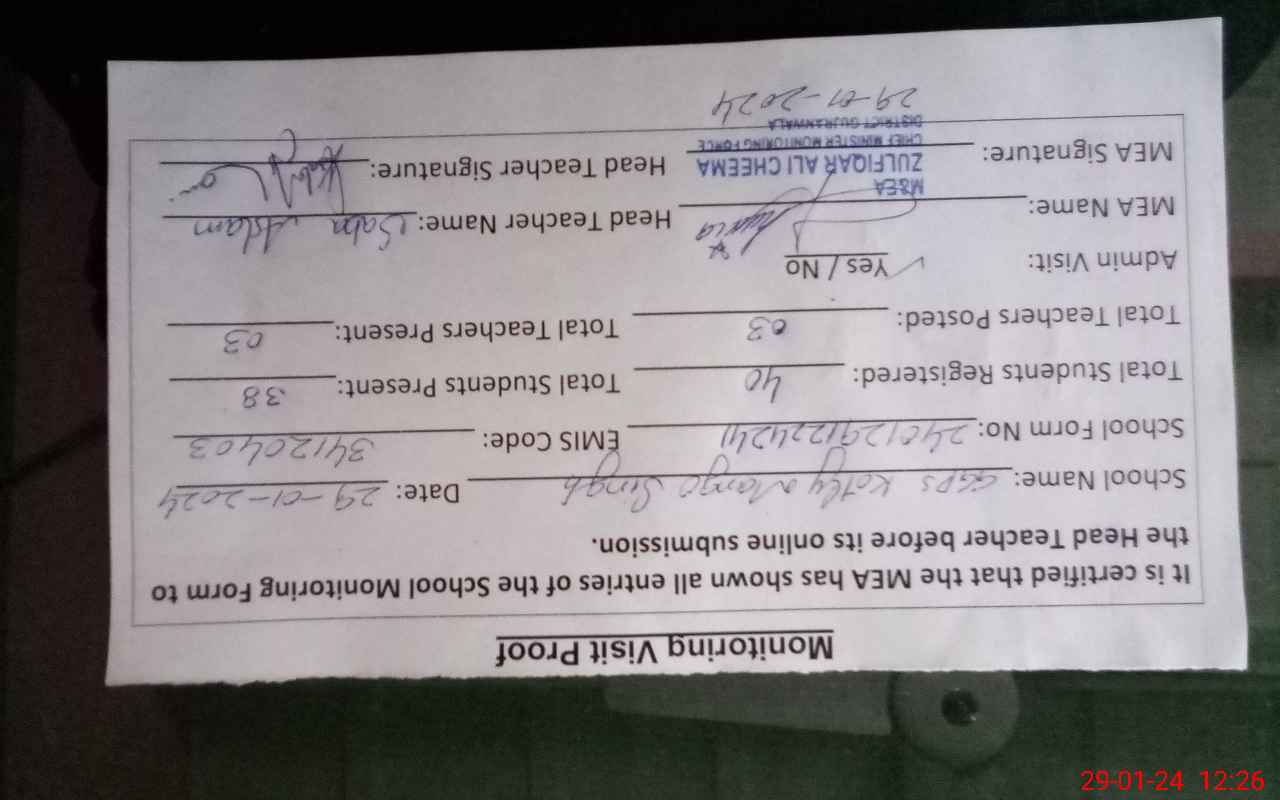 Monitoring Visit Proof
It is certified that the MEA has shown all entries of the School Monitoring Form to
the Head Teacher before its online submission.
School Name: GGPS Kotly Mango Singh Date: 29-01-2024
School Form No: 2401291224241 EMIS Code: 34120403
Total Students Registered: 40 Total Students Present: 38
Total Teachers Posted: 03 Total Teachers Present: 03
Admin Visit: Yes / No
MEA Name: Head Teacher Name: Saba Aslam
M&EA
ZULFIQAR ALI CHEEMA
MEA Signature: Head Teacher Signature:
CHIEF MINISTER MONITORING FORCE
DISTRICT GUJRANWALA
29-01-2024
29-01-24 12:26